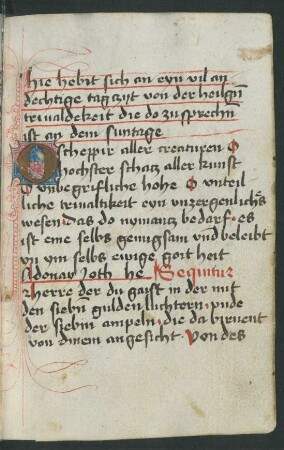 hie hebit sich an eyn vil an
dechtige tagczyt von der heilgen
triualdekeit die do zu sprechen
ist an dem suntage
O scheppir aller creaturen O
hochster schatz aller kunst
O vnbegrifliche hohe O vnteil
liche triualtikeit eyn vnzergenlichs
wesen das do nymantz bedarf es
ist eme selbs genugsam vnd beleibt
yn ym selbs ewige gotheit
Adonay Joth he Sequitur
herre der du gaist in der mit
den sieben gulden luchtern vnde
der siebin ampeln die da birnent
von dinem angesicht Von des